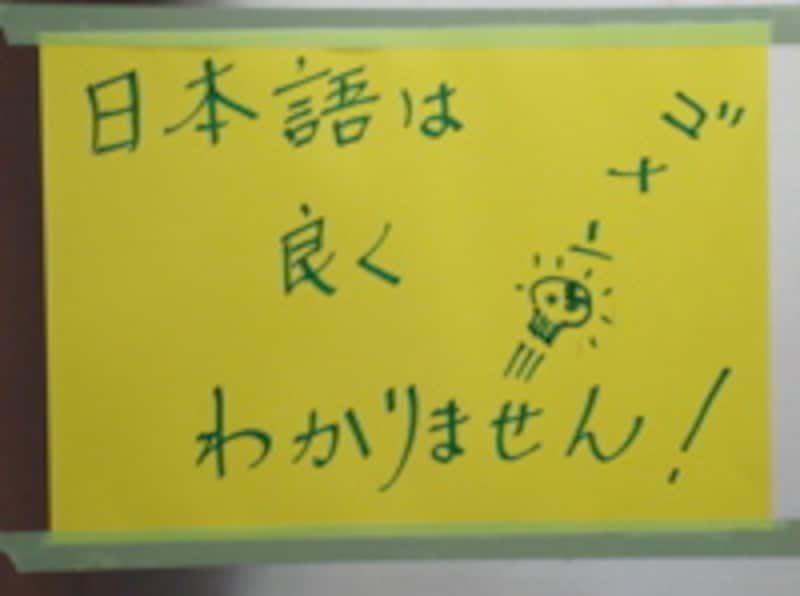 日本語は
良く
わかりません!